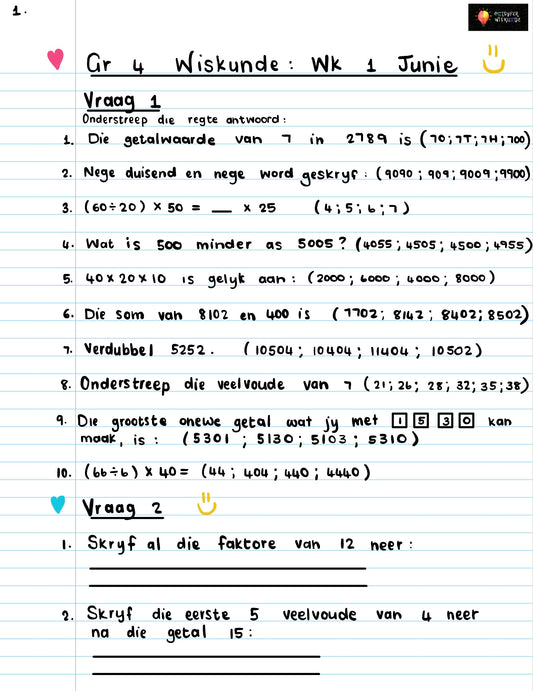 1.
Gr 4 Wiskunde: Wk 1 Junie
Vraag 1
Onderstreep die regte antwoord:
1. Die getalwaarde van 7 in 2789 is (70; 7T; 7H; 700)
2. Nege duisend en nege word geskryf: (9090; 909; 9009; 9900)
3. (60÷20) × 50 = __ × 25 (4; 5; 6; 7)
4. Wat is 500 minder as 5005? (4055; 4505; 4500; 4955)
5. 40 × 20 × 10 is gelyk aan: (2000; 6000; 4000; 8000)
6. Die som van 8102 en 400 is (7702; 8142; 8402; 8502)
7. Verdubbel 5252. (10504; 10404; 11404; 10502)
8. Onderstreep die veelvoude van 7 (21; 26; 28; 32; 35; 38)
9. Die grootste onewe getal wat jy met 1 5 3 0 kan
maak, is: (5301; 5130; 5103; 5310)
10. (66÷6) × 40 = (44; 404; 440; 4440)
Vraag 2
1. Skryf al die faktore van 12 neer:
2. Skryf die eerste 5 veelvoude van 4 neer
na die getal 15: